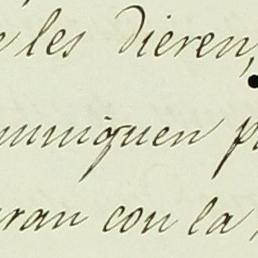 e les dieren,
muniquen p
aran con la